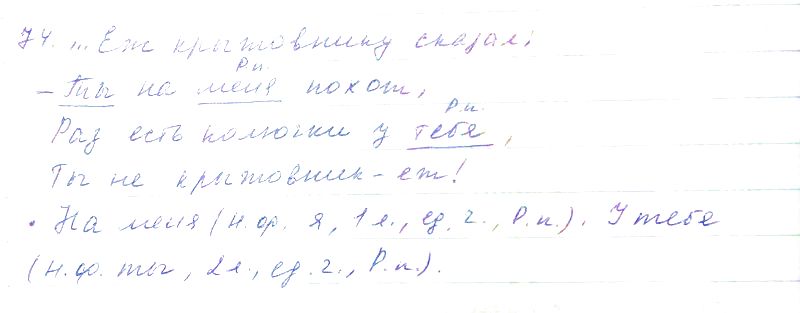 74. ... Еж крыжовнику сказал:
Р.п.
– Ты на меня похож,
Р.п.
Раз есть колючки у тебя,
Ты не крыжовник – еж!
• На меня (н.ф. я, 1 л., ед. ч., Р.п.). У тебя
(н.ф. ты, 2 л., ед. ч., Р.п.).